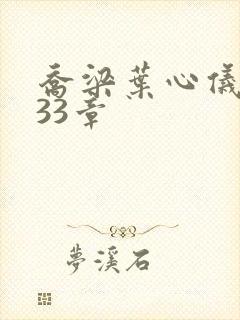 喬梁葉心儀
33章
夢溪石